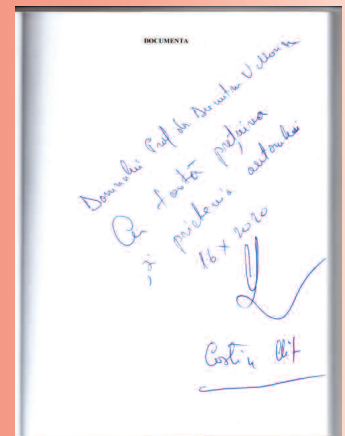 DOCUMENTA
Domnului Prof. dr. Dumitru V
Cu toată prețuirea
și prietenia autorului
16 X 2020
Costin Clit